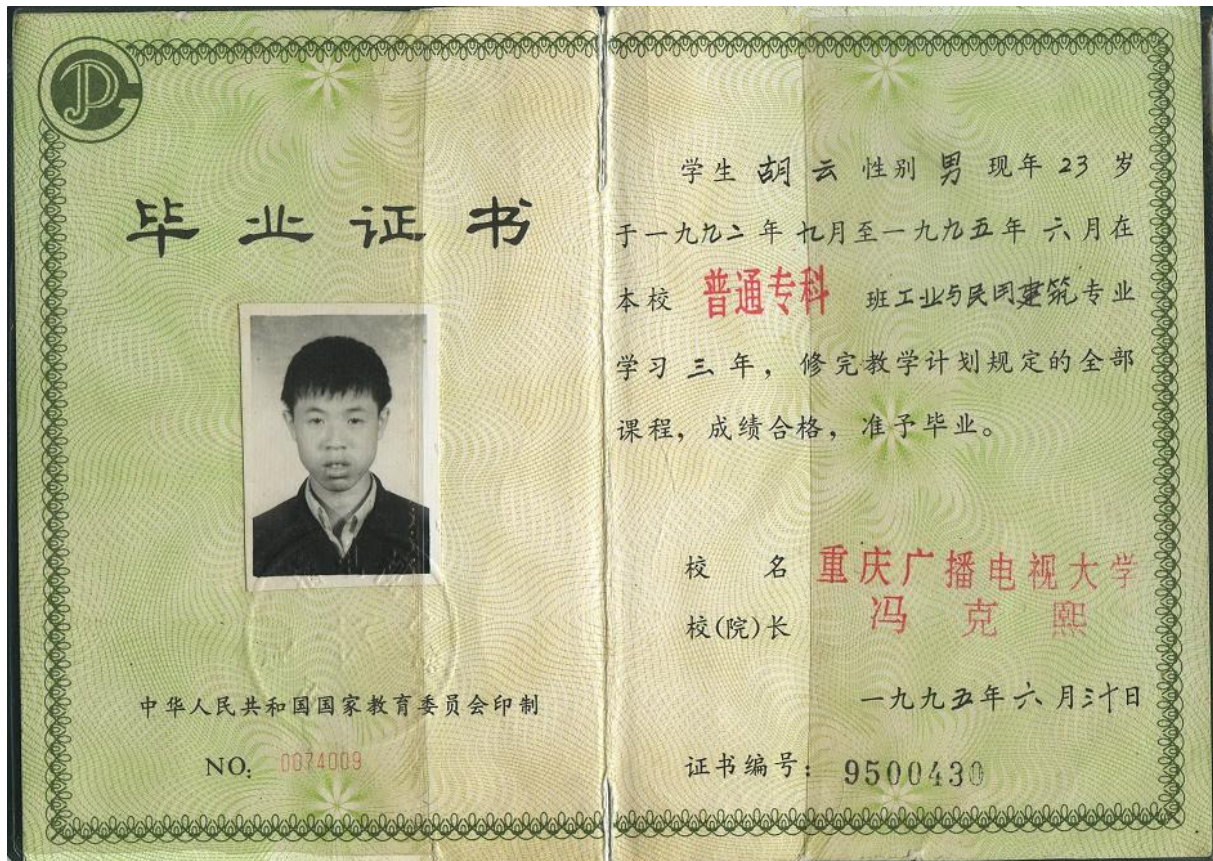 毕业证书
中华人民共和国国家教育委员会印制
NO: 0074009
学生 胡云 性别 男 现年 23 岁
于一九九二年九月至一九九五年六月在
本校 普通专科 班工业与民用建筑专业
学习三年，修完教学计划规定的全部
课程，成绩合格，准予毕业。
校名 重庆广播电视大学
校(院)长 冯克熙
一九九五年六月三十日
证书编号：9500430